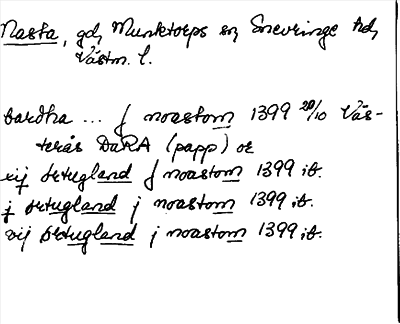 Nasta, gd, Munktorps sn, Snevringe hd,
Västm. l.
bardha ... j noastom 1399 20/10 Väs-
terås DaRA (papp) or
xij örtugland j noastom 1399 ib.
j örtugland j noastom 1399 ib.
vij örtugland j noastom 1399 ib.